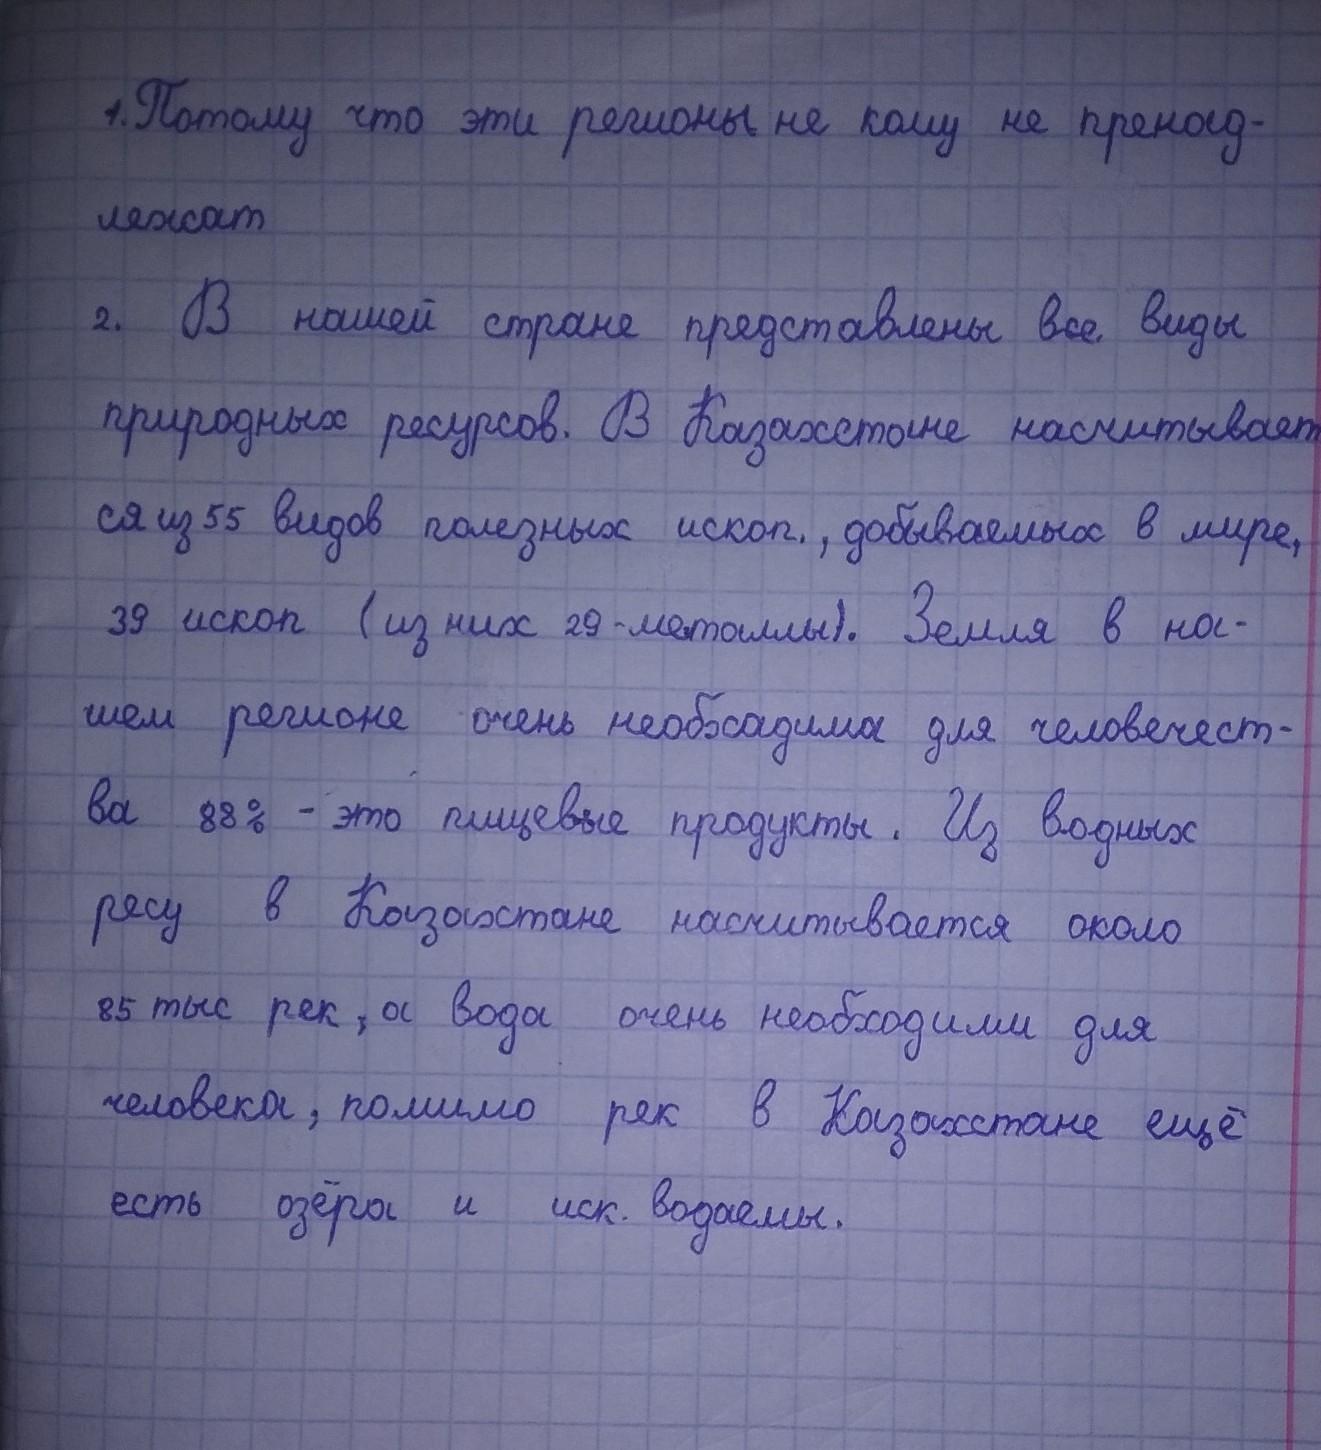 1. Потому что эти регионы не кому не пренад-
лежат
2. В нашей стране представлены все виды
природных ресурсов. В Казахстане насчитывает
ся из 55 видов полезных ископ., добываемых в мире,
39 ископ (из них 29-металлы). Земля в на-
шем регионе очень необхадима для человечест-
ва 88% - это пищевые продукты. Из водных
ресу в Казахстане насчитывается около
85 тыс рек, а вода очень необходими для
человека, помимо рек в Казахстане ещё
есть озёра и иск. водаемы.